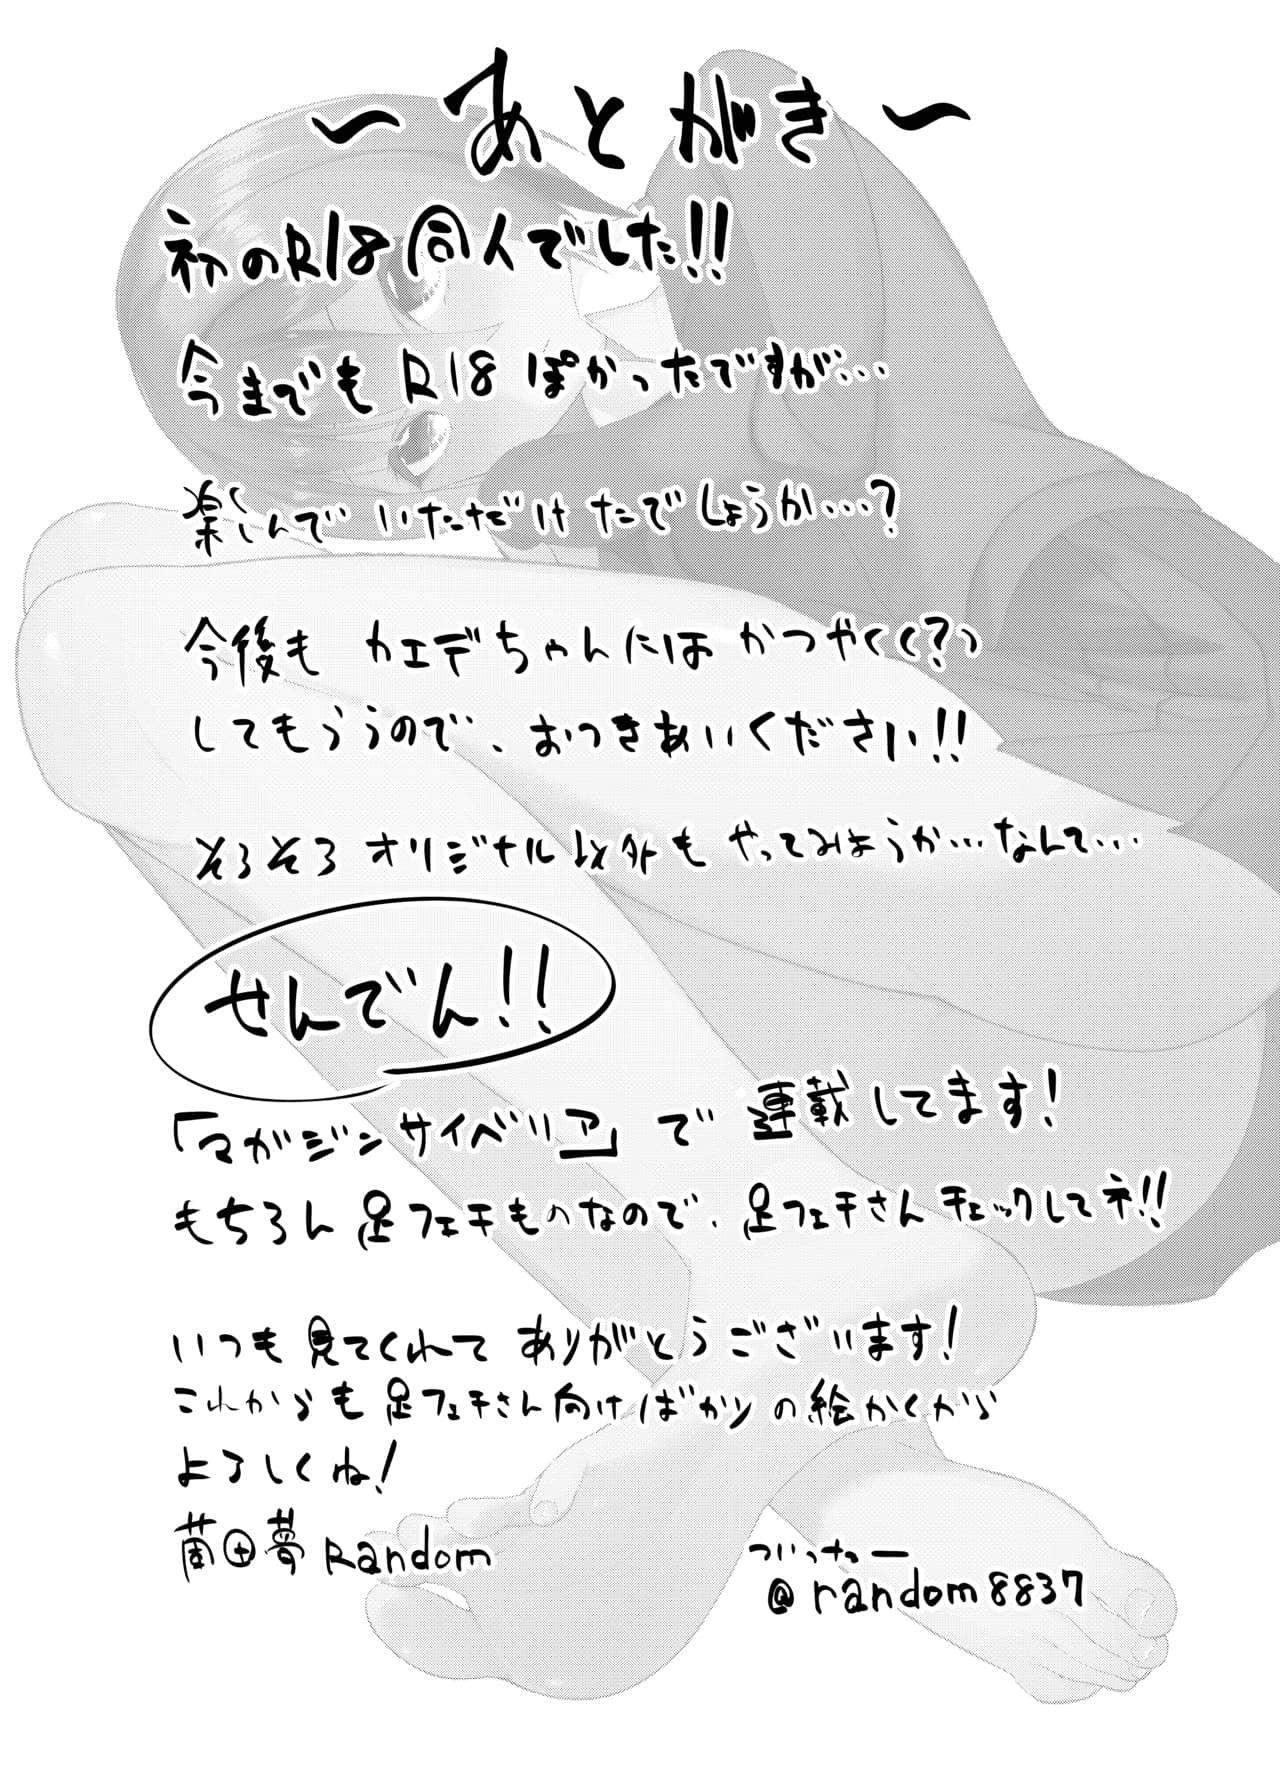 ～あとがき～
初のR18同人でした!!
今までもR18ぽかったですが…
楽しんでいただけたでしょうか…?
今後もカエデちゃんにはかつやく(?)
してもらうので、おつきあいください!!
そろそろオリジナル以外もやってみようか…なんて…
せんでん!!
「マガジンサイベリア」で連載してます!
もちろん足フェチものなので、足フェチさんチェックしてネ!!
いつも見てくれてありがとうございます!
これからも足フェチさん向けばかりの絵かくから
よろしくね!
田夢Random
ついったー
@random8837